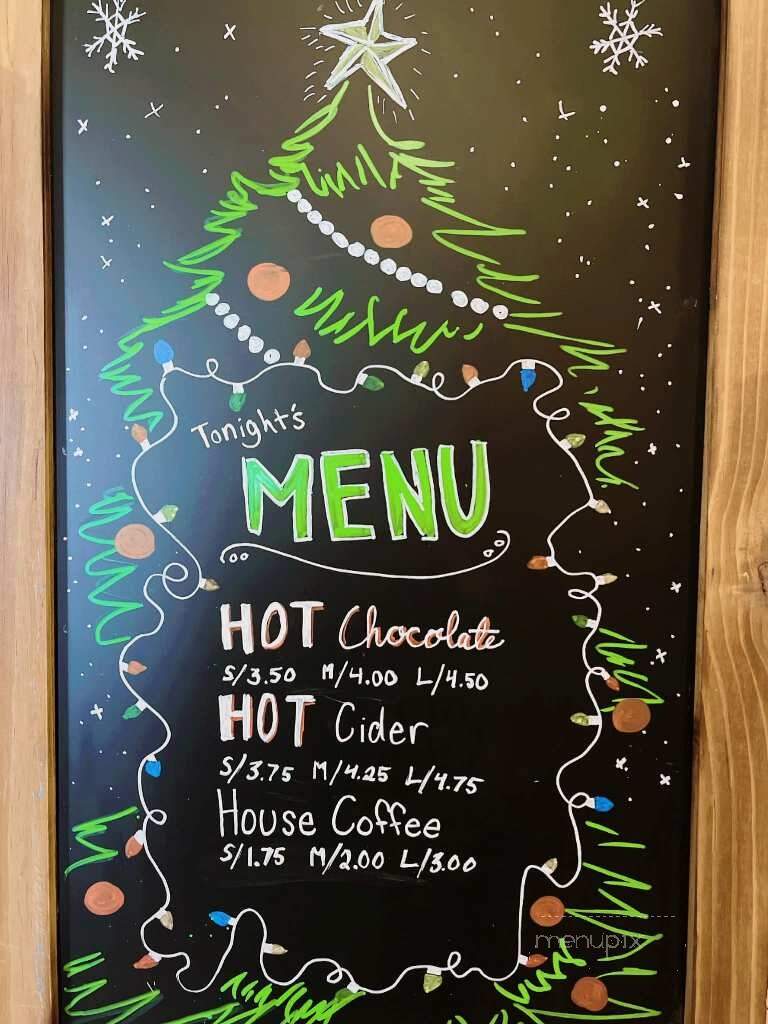 Tonight's
MENU
HOT Chocolate
S/3.50 M/4.00 L/4.50
HOT Cider
S/3.75 M/4.25 L/4.75
House Coffee
S/1.75 M/2.00 L/3.00
menupix